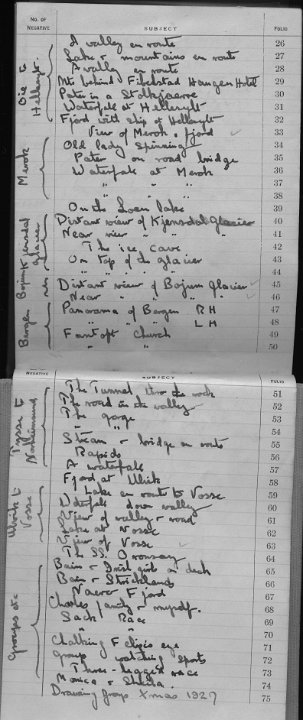 NO. OF NEGATIVE SUBJECT FOLIO
A valley en route 26
Lake & mountains en route 27
A valley en route 28
Mt behind Haugen Hotel 29
Pater in a Stolkjaerre 30
Waterfall at Hellesylt 31
Fjord with ship off Hellesylt 32
View of Merok & fjord 33
Old lady Spinning 34
Pater on road bridge 35
Waterfall at Merok 36
" " " 37
" " " 38
On the Loen lake 39
Distant view of Kjensdal Glacier 40
Near view " " 41
The ice cave 42
On top of the glacier 43
" " " 44
Distant view of Bojum Glacier 45
Near " " " 46
Panorama of Bergen RH 47
" " " LH 48
Fantoft Church 49
" " 50
Oie to Hellesylt
Merok
Kjensdal glacier
Bojum
Bergen
NEGATIVE SUBJECT FOLIO
The Tunnel thro the rock 51
The road in the valley 52
The gorge 53
" " 54
Stream & bridge en route 55
Rapids 56
A waterfall 57
Fjord at Ulvik 58
Lake en route to Vosse 59
Waterfall down valley 60
View of valley & road 61
Lake at Vosse 62
View of Vosse 63
The SS Oronsay 64
Bain & girls on deck 65
Bain & Stricklands 66
Naero Fjord 67
Charles family & myself. 68
Sack Race 69
" " 70
Chalking Eligis eye 71
Groups watching Sports 72
Three-legged race 73
Monica & Sheila. 74
Drawing group Xmas 1927 75
Ulvik to Vosse
Groups etc